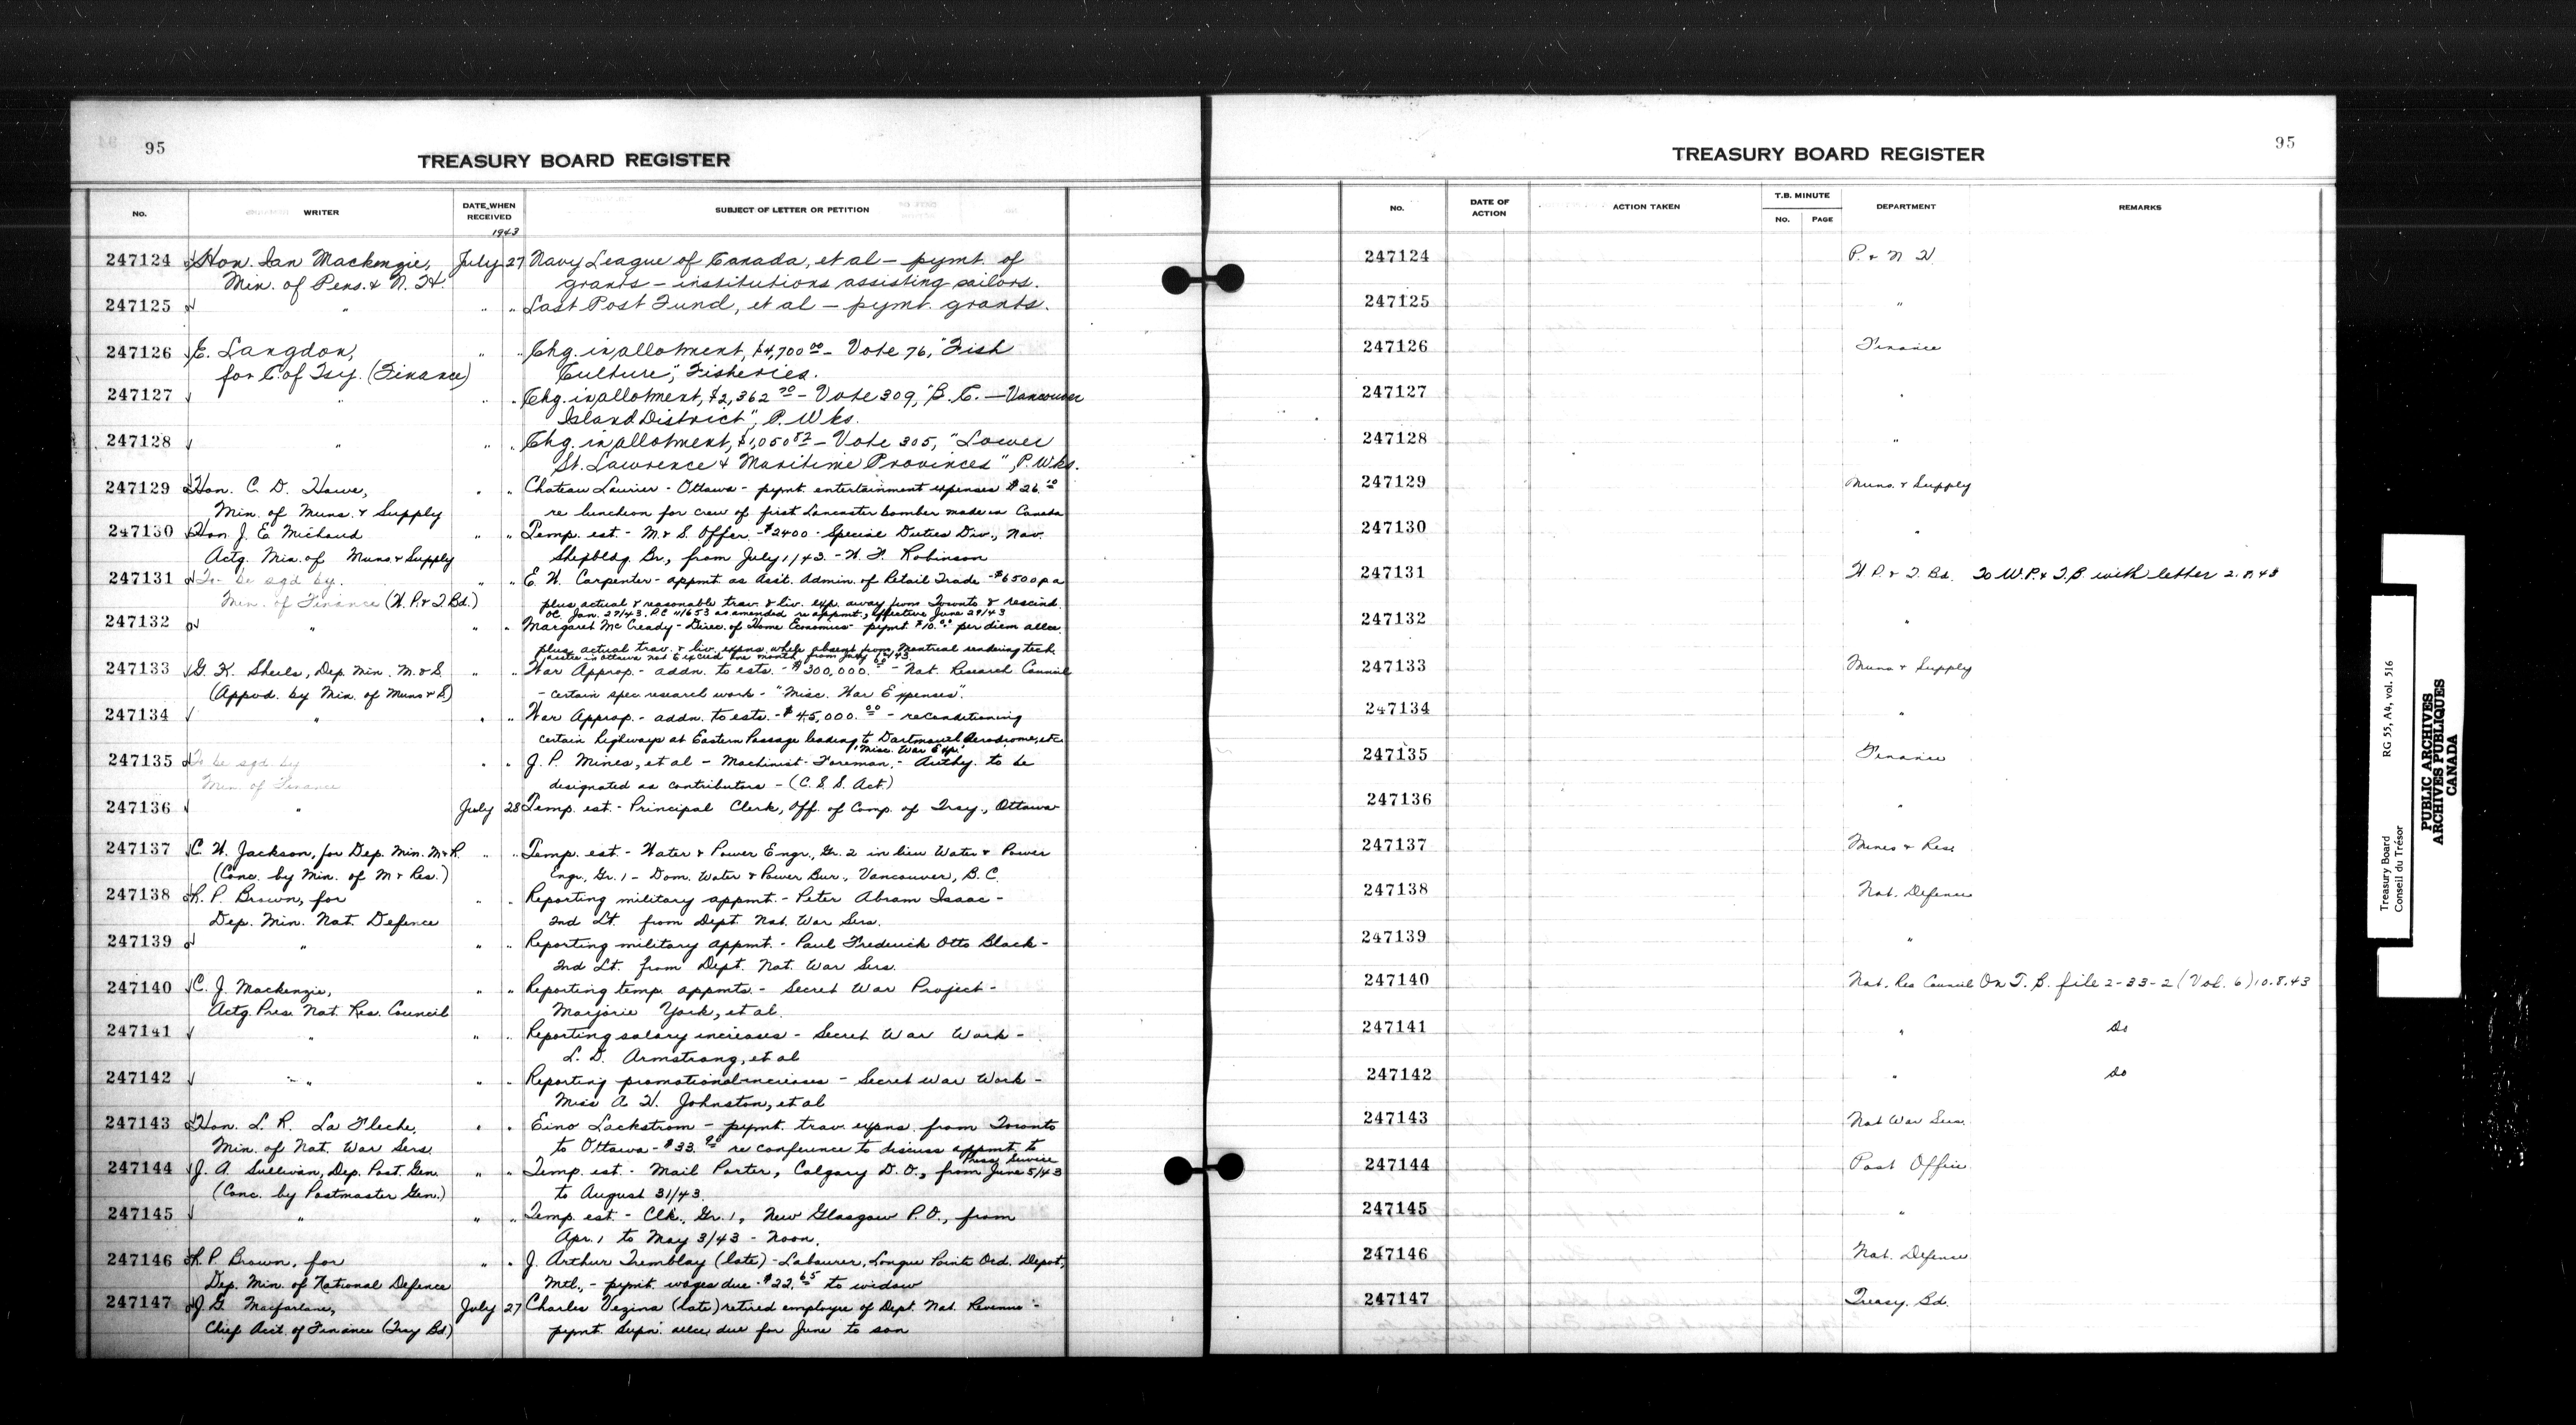 95
TREASURY BOARD REGISTER
No. WRITER DATE WHEN RECEIVED SUBJECT OF LETTER OR PETITION
1943
247124 Hon. Ian Mackenzie, July 27 Navy League of Canada, et al – pymt. of
Min. of Pens. & N. H. grants – institutions assisting sailors.
247125 " " " Last Post Fund, et al – pymt. grants.
247126 E. Langdon, " " Chg. in allotment, $4,700.00 – Vote 76, "Fish
for C. of Tsy. (Finance) Culture", Fisheries.
247127 " " " Chg. in allotment, $2,362.70 – Vote 309, "B.C. – Vancouver
Island District", P. Wks.
247128 " " " Chg. in allotment, $1,050.87 – Vote 305, "Lower
St. Lawrence & Maritime Provinces", P. Wks.
247129 Hon. C. D. Howe, " " Chateau Laurier - Ottawa - pymt. entertainment expenses $26.10
Min. of Muns. & Supply re luncheon for crew of first Lancaster bomber made in Canada
247130 Hon. J. E. Michaud " " Temp. est. - M. & S. Offer - $2400 - Special Duties Div., Nav.
Actg. Min. of Muns & Supply Shipbldg. Br., from July 1/43. - W. F. Robinson
247131 To be sgd by. " " E. W. Carpenter - appmt. as Asst. Admin. of Retail Trade - $6500 p a
Min. of Finance (W. P. & T. Bd.) plus actual & reasonable trav. & liv. exp. away from Toronto & rescind.
OC. Jan. 27/43. P.C. 4/653 as amended re appmt., effective June 29/43
247132 " " " Margaret McCready - Direc. of Home Economics - pymt. $10.00 per diem allce.
plus actual trav. & liv. expns. while absent from Montreal rendering tech.
not to exceed one month from July
247133 G. K. Sheils, Dep. Min. M. & S. " " War Approp. - addn. to ests. - $300,000.00 - Nat. Research Council
(Appvd. by Min. of Muns & S) - certain spec. research work - "Misc. War Expenses".
247134 " " " War Approp. - addn. to ests. - $45,000.00 - reconditioning
certain highways at Eastern Passage leading to Dartmouth Aerodrome, etc.
"Misc. War Exp."
247135 To be sgd by " " J. P. Mines, et al - Machinist - Foreman, - Authy. to be
Min. of Finance designated as contributors - (C. S. S. Act.)
247136 " July 28 Temp. est. - Principal Clerk, Off. of Comp. of Trsy., Ottawa
247137 C. W. Jackson, for Dep. Min. M & R. " " Temp. est. - Water & Power Engr., Gr. 2 in lieu Water & Power
(Conc. by Min. of M & Res.) Engr., Gr. 1 - Dom. Water & Power Bur., Vancouver, B.C.
247138 R. P. Brown, for " " Reporting military appmt. - Peter Abram Isaac -
Dep. Min. Nat. Defence 2nd Lt. from Dept. Nat. War Sers.
247139 " " " Reporting military appmt. - Paul Frederick Otto Black -
2nd Lt. from Dept. Nat. War Sers.
247140 C. J. Mackenzie, " " Reporting temp. appmts. - Secret War Project -
Actg. Pres. Nat. Res. Council Marjorie York, et al.
247141 " " " Reporting salary increases - Secret War Work -
L. D. Armstrong, et al
247142 " " " Reporting promotional increases - Secret War Work -
Miss A. W. Johnston, et al
247143 Hon. L. R. La Fleche, " " Eino Lackstrom - pymt. trav. expns. from Toronto
Min. of Nat. War Sers. to Ottawa - $33.90 re conference to discuss appmt. to
Press Service
247144 J. A. Sullivan, Dep. Post. Gen. " " Temp. est. - Mail Porter, Calgary D. O., from June 5/43
(Conc. by Postmaster Gen.) to August 31/43.
247145 " " " Temp. est. - Clk., Gr. 1, New Glasgow P.O., from
Apr. 1 to May 3/43 - Noon.
247146 R. P. Brown, for " " J. Arthur Tremblay (late) - Labourer, Longue Pointe Ord. Depot,
Dep. Min. of National Defence Mtl., - pymt. wages due - $22.65 to widow
247147 J. G. Macfarlane, July 27 Charles Vezina (late) retired employee of Dept. Nat. Revenue -
Chief Acct. of Finance (Tsy Bd) pymt. Supn. allce. due for June to son
95
TREASURY BOARD REGISTER
No. DATE OF ACTION ACTION TAKEN T.B. MINUTE No. PAGE DEPARTMENT REMARKS
247124 P. & N. H.
247125 "
247126 Finance
247127 "
247128 "
247129 Muns. & Supply
247130 "
247131 W. P. & T. Bd. To W.P. & T.B. with letter 2.8.43
247132 "
247133 Muns & Supply
247134 "
247135 Finance
247136 "
247137 Mines & Res.
247138 Nat. Defence
247139 "
247140 Nat. Res Council On T. B. file 2-33-2 (Vol. 6) 10.8.43
247141 " Do
247142 " Do
247143 Nat War Sers.
247144 Post Office
247145 "
247146 Nat. Defence
247147 Treasy. Bd.
Treasury Board RG 55, A4, vol. 516
Conseil du Trésor
PUBLIC ARCHIVES
ARCHIVES PUBLIQUES
CANADA